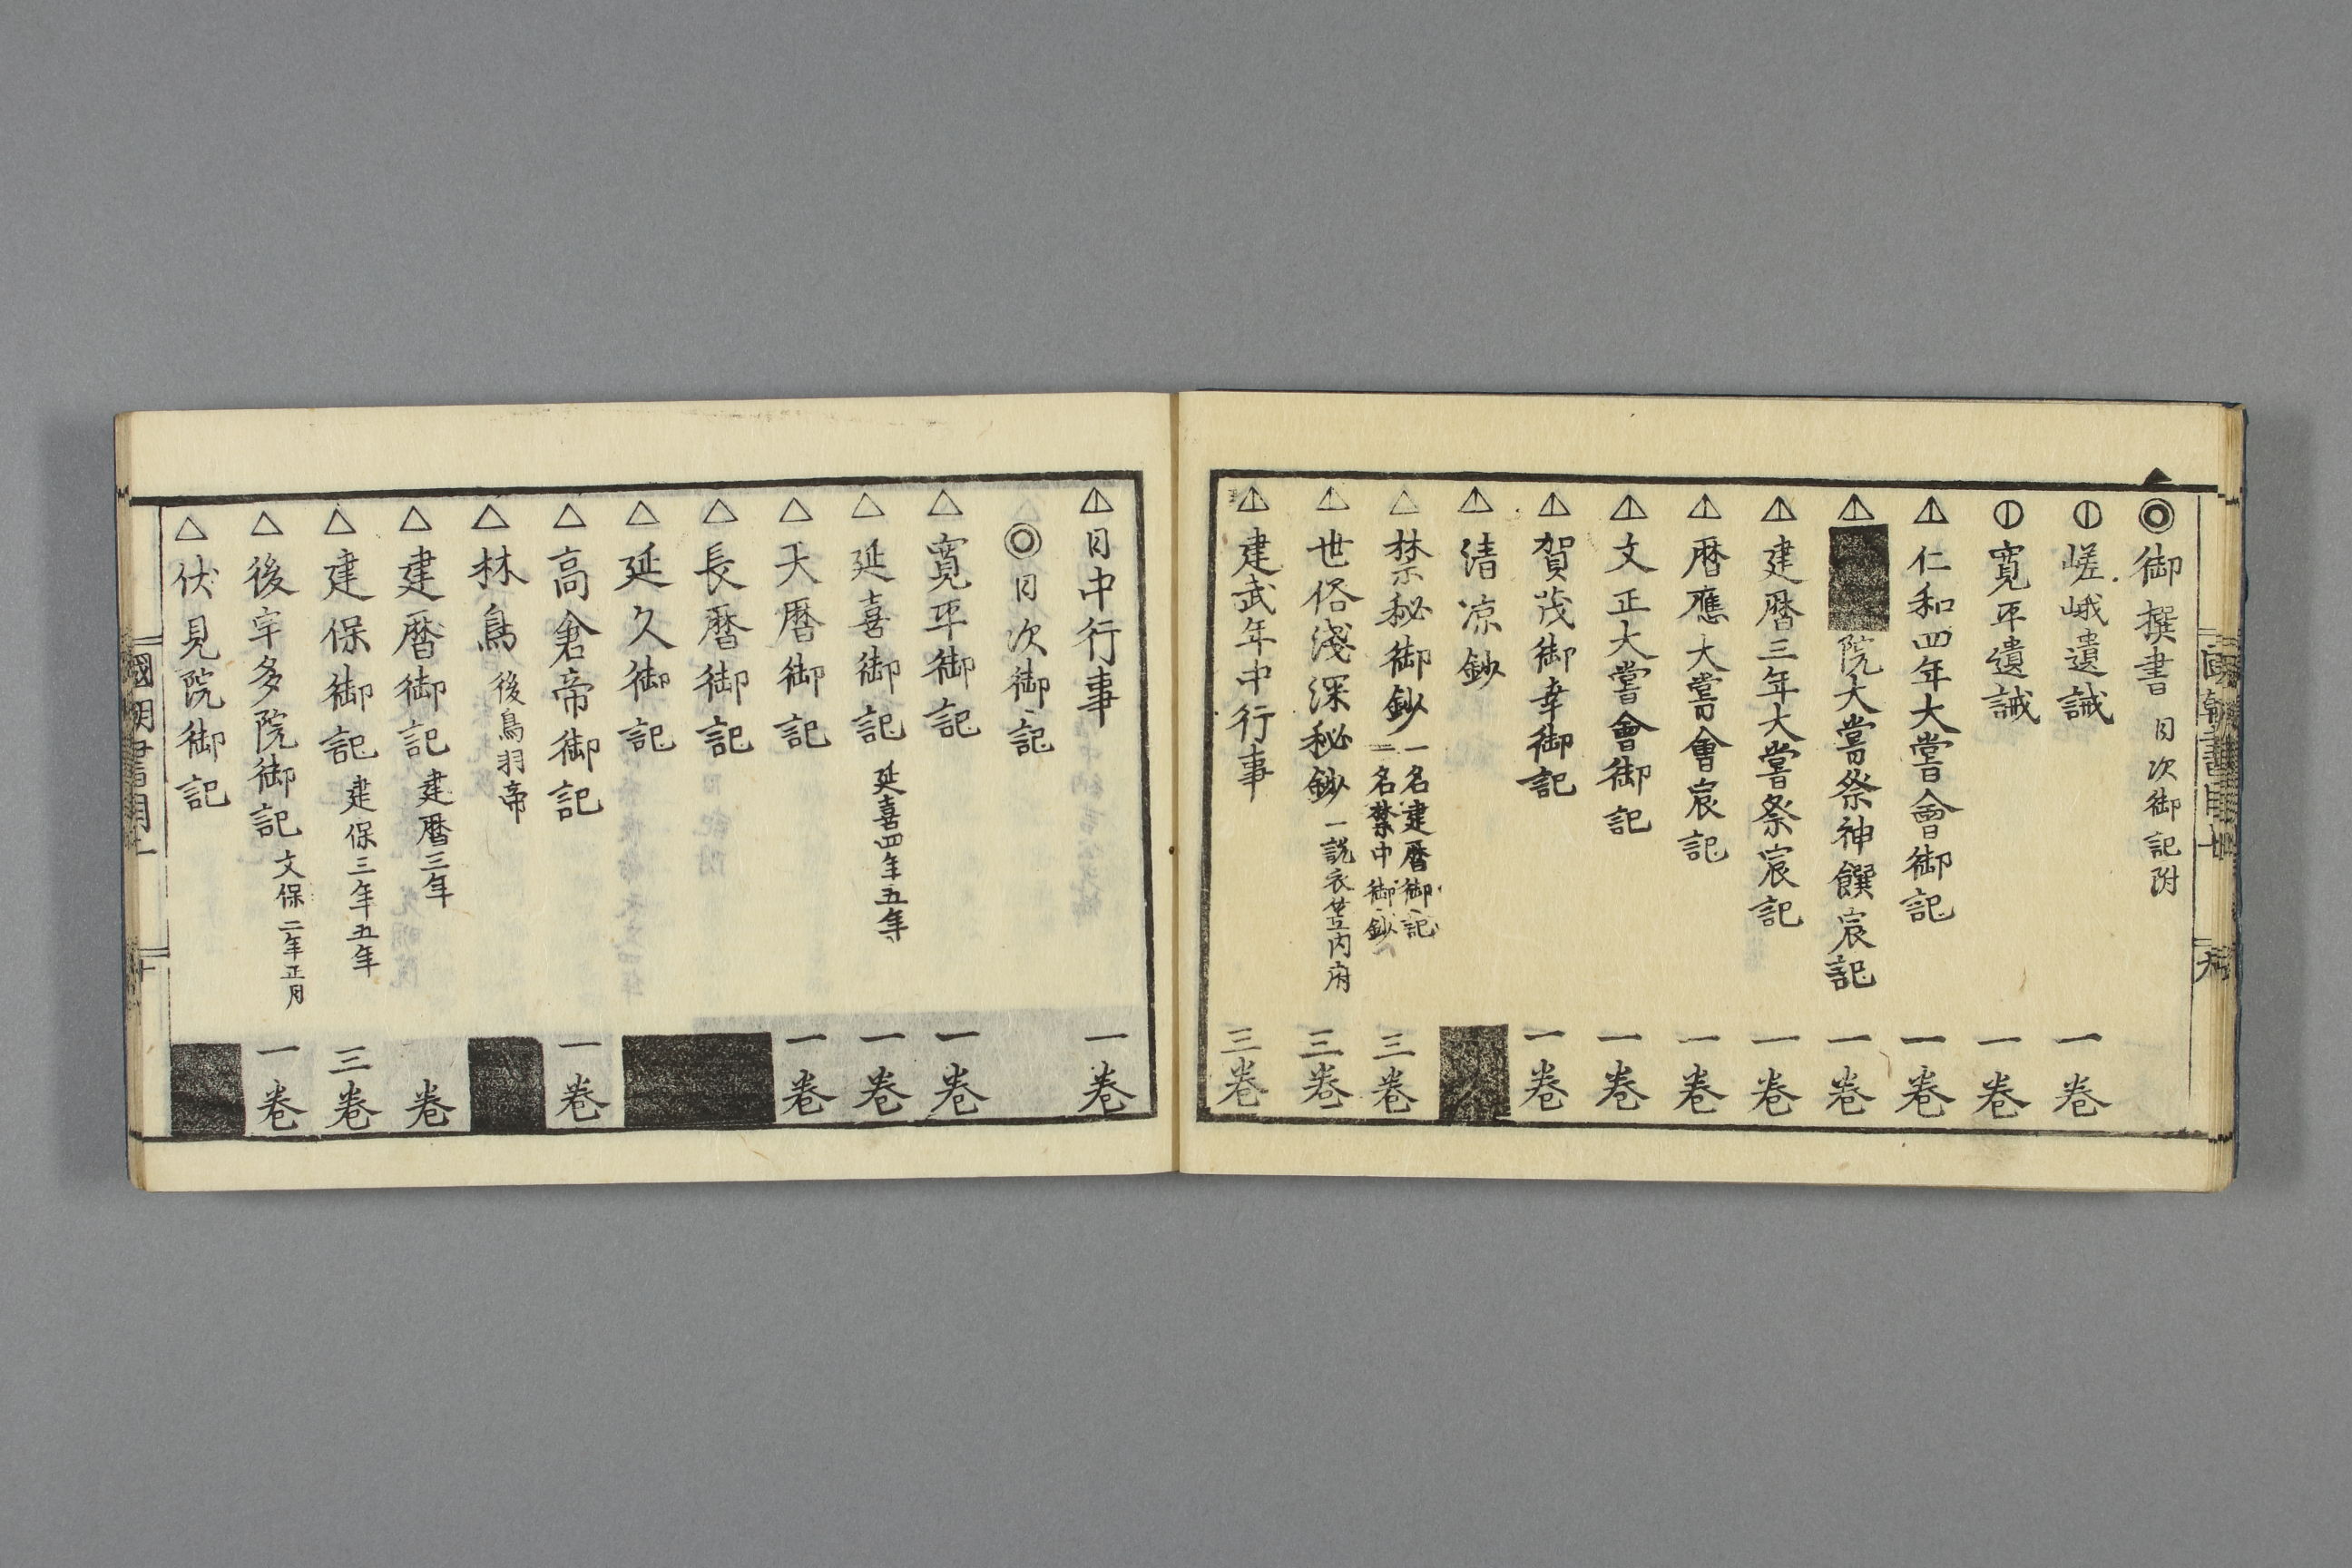 ◎御撰書 日次御記附
嵯峨遺誡 一卷
寛平遺誡 一卷
仁和四年大嘗會御記 一卷
院大嘗祭神饌宸記 一卷
建暦三年大嘗祭宸記 一卷
暦應大嘗會宸記 一卷
文正大嘗會御記 一卷
賀茂御幸御記 一卷
清凉鈔
禁秘御鈔 一名建暦御記 一名禁中御鈔 三卷
世俗淺深秘鈔 一説衣笠内府 三卷
建武年中行事 三卷
日中行事 一卷
◎日次御記
△寛平御記 一卷
△延喜御記 延喜四年五年 一卷
△天暦御記 一卷
△長暦御記
△延久御記
△高倉帝御記 一卷
△林鳥 後鳥羽帝
△建暦御記 建暦三年 卷
△建保御記 建保三年五年 三卷
△後宇多院御記 文保二年正月 一卷
△伏見院御記